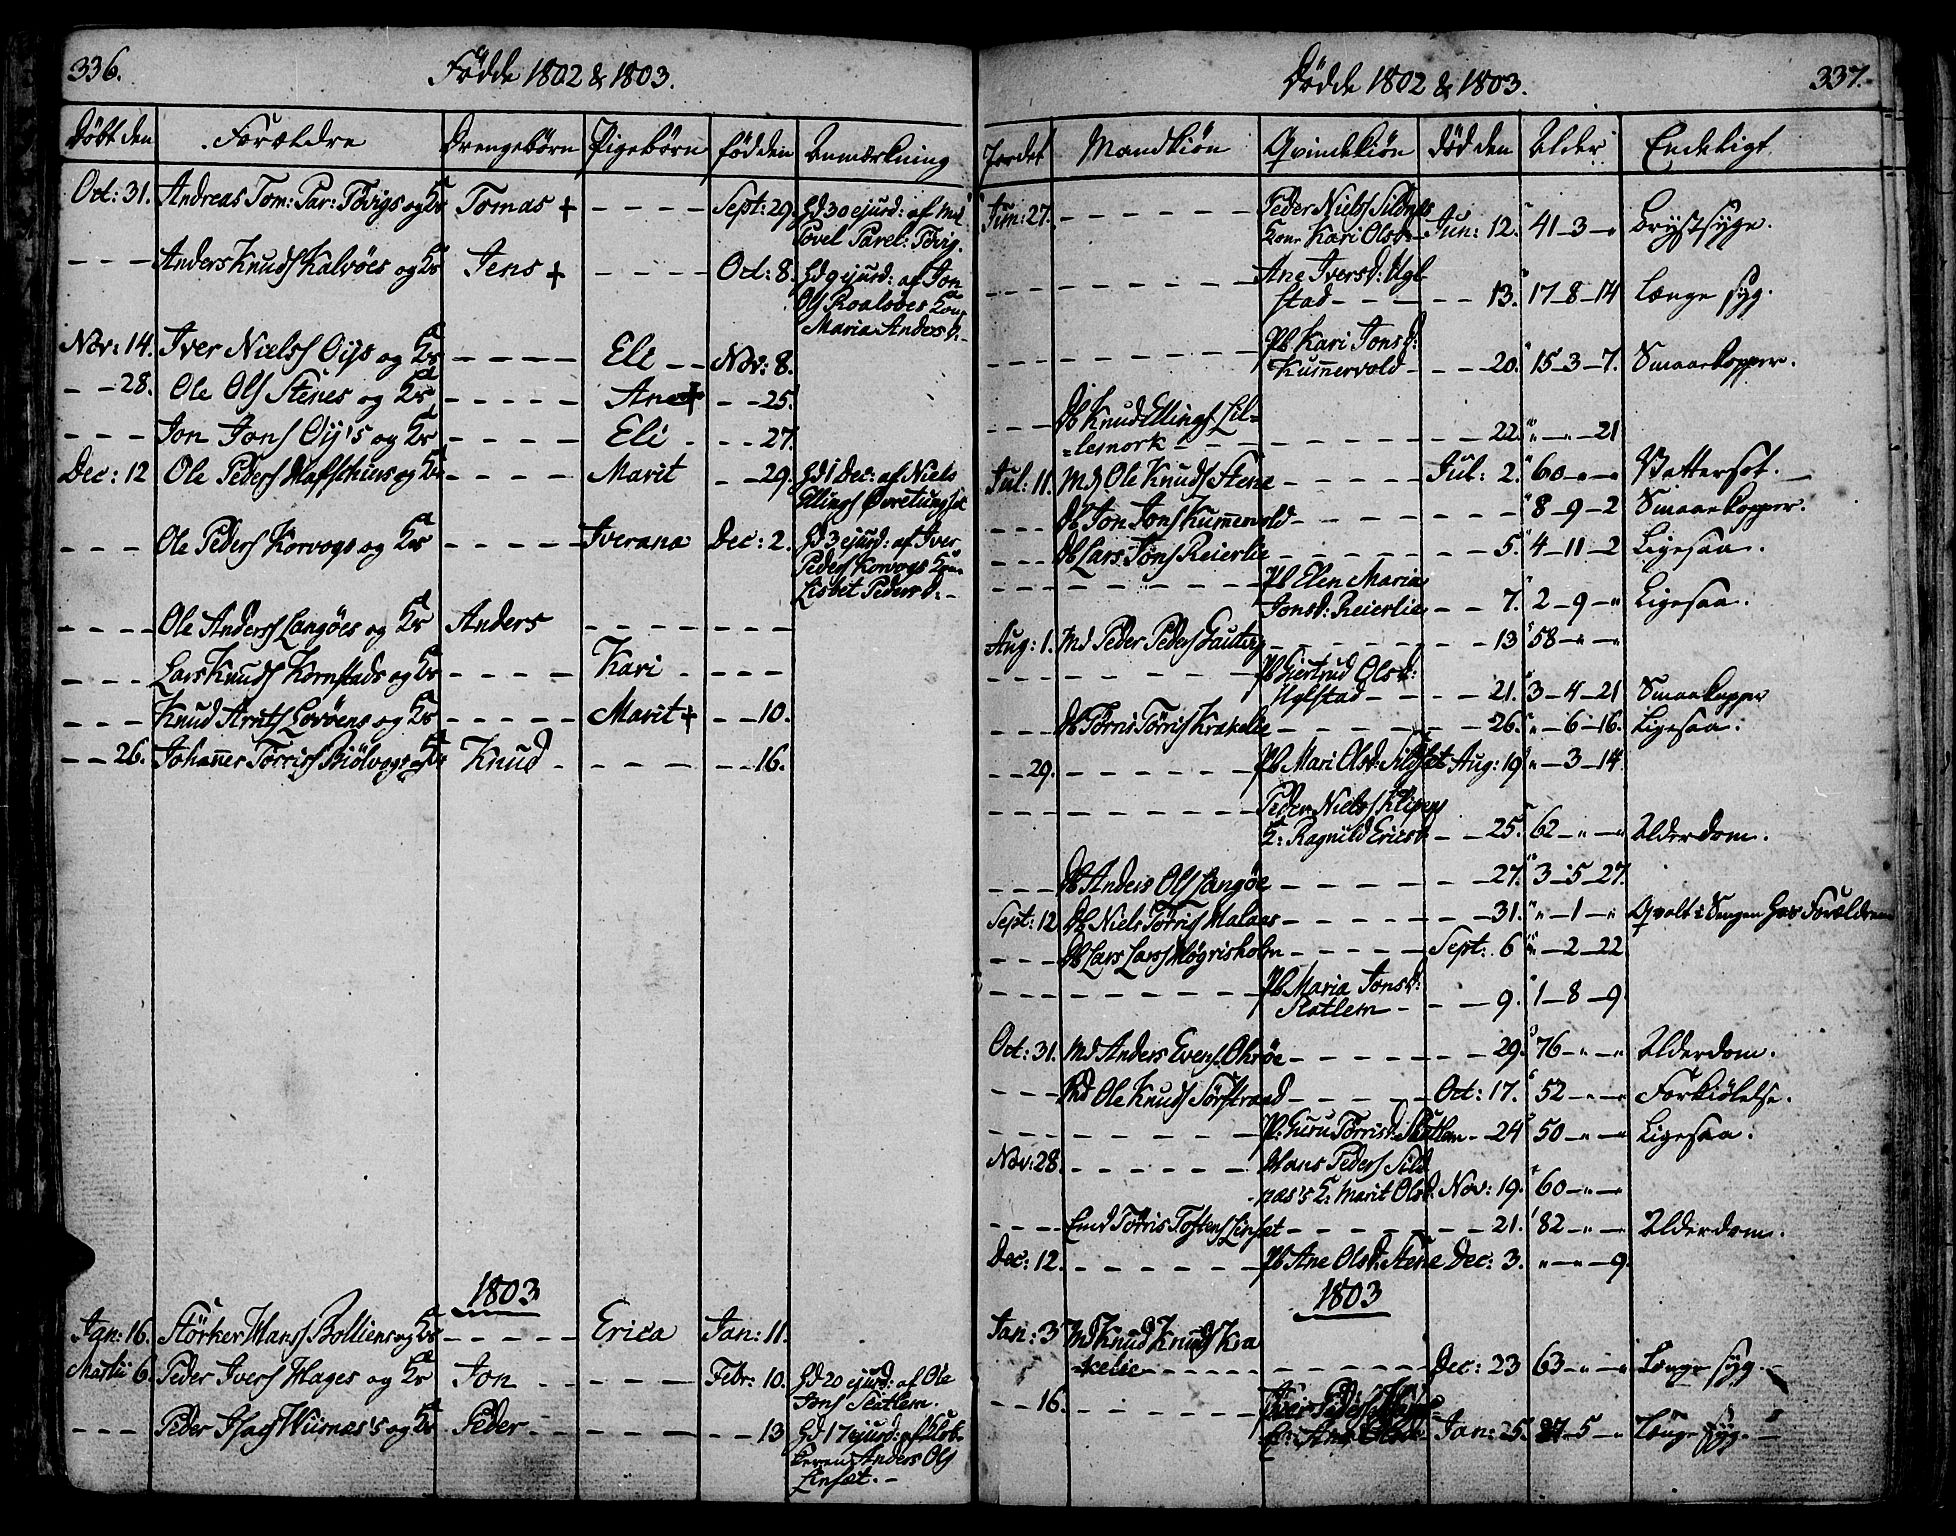 336. Fødde 1802 & 1803.
Døbt den Forældre Drengebørn Pigebørn født den Anmærkning
Oct: 31. Andreas Tom: Par: Tøvigs og Kr Tomas + - - - - Sept: 29. Hd 30 ejusd: af Md
Povel Parel: Tøvig.
- - - Anders Knuds Kalvøes og Kr Jens + - - - - Oct: 8. Hd 9 ejusd: af Jon
Ols Roalsøes Kone
Maria Anders d: -
Nov: 14. Iver Niels Øijs og Kr - - - - - Eli - - Nov: 8.
- - 28. Ole Ols Stenes og Kr - - - - - Ane + - - 25.
- - - Jon Jons Øij's og Kr - - - - Eli - - - 27.
Dec: 12 Ole Peders Hafsthuus og Kr - - - - Marit - - 29. Hd 1 Dec: af Niels
Ellings Øvretungset
- - - Ole Peders Korvogs og Kr - - - - - Iverana Dec: 2. Hd 3 ejusd: af Iver
Peders Korvogs Kone
Lisbet Pedersd: -
- - - - Ole Anders Langøes og Kr Anders - - - - - - -
- - - - Lars Knuds Kornstads og Kr - - - - Kari - - - -
- - - Knud Arnts Lovøens og Kr - - - - - Marit + - - 10.
- - 26. Johañes Tørris Biølvogs og Kr Knud - - - - - - - 16.
1803
Jan: 16. Størker Hans Bolliens og Kr - - - - - Erica Jan: 11.
Martii 6. Peder Ivers Hages og Kr Jon - - - - - Febr: 10. Hd 20 ejusd: af Ole
Jons Skatlem.
- - - Peder Isacs Wiirnæs's og Kr Peder - - - - - - - 13 Hd 17 ejusd: af Klok-
keren Anders Ols
Linset. -
Dødde 1802 & 1803. 337.
Jordet Mandkiøn Qvindekiøn død den Alder Endeligt
Jun: 27. - - - - - - Peder Niels Sildnes
Kone Kari Olsd: - Jun: 12. 41 - 3 - " Brystsyge.
- - - - - - - - - - Ane Iversd: Ugl-
stad - - - - - - 13. 17 - 8 - 14 Længe syg.
- - - - - - - - - Pb Kari Jonsd:
Kum̃ervold - - - 20. 15 - 3 - 7. Smaakopper.
- - - - Db Knud Ellings Lil-
=lemork - - - - - - - - - 22. " - " - 21
Jul: 11. Md Ole Knuds Stene - - - - - Jul: 2. 60 - " - " Vattersot.
- - - Db Jon Jons Kum̃ervold - - - - - - - - " 8 - 9 - 2 Smaakopper.
- - - Db Lars Jons Reierlie - - - - - - - 5. 4 - 11 - 2 Ligesaa.
- - - - - - - - - - Pb Elen Maria
Jonsd: Reierlie - - 7. 2 - 9 - " Ligesaa.
Aug: 1. Md Peder Peders - - - - - - - 13 58 - " - "
- - - - - - - - - Pb Giertrud Olsd:
Uglstad - - - - 21. 3 - 4 - 21 Smaakopper
- - - Db Tørris Tørris Krakelie - - - - - - 26. " - 6 - 16. Ligesaa.
- - 29. - - - - - - - Pb Mari Olsd: Sildset Aug: 19 " - 3 - 14.
- - - - - - - - - Peder Niels Klipens
K: Ragnild Ericsd - - 25. 62 - " - " Alderdom.
- - - Db Anders Ols Langøe - - - - - - - 27. 3 - 5 - 27.
Sept: 12 Db Niels Tørris Malaas - - - - - - 31. " - 1 - " Qvalt i Sengen hos Forældrene
- - - Db Lars Lars Møgrisholm - - - - - Sept: 6 " - 2 - 22
- - - - - - - - - - Pb Maria Jonsd:
Skatlem - - - 9. 1 - 8 - 9
Oct: 31. Md Anders Evens Ohrøe - - - - - - - 29. 76 - " - " Alderdom.
- - - Md Ole Knuds Sørstrand - - - - - Oct: 17. 52 - " - " Forkiølelse.
- - - - - - - - - P: Guru Tørrisd: Skatlem - 24 50 - " - " Ligesaa.
Nov: 28. - - - - - - Hans Peders Sild
næs's K: Marit Olsd: Nov: 19. 60 - " - "
- - - - Emd Tørris Tostens Linset - - - - - - 21. 82 - " - " Alderdom.
Dec: 12. - - - - - - - Pb Ane Olsd: Stene Dec: 3. " - " - 9.
1803
Jan: 3 Md Knud Knuds Kra
=kelie - - - - - - - - - Dec: 23 63 - " - " Længe syg. -
- - 16. - - - - - - - Iver Peders
K: Ane Olsd - Jan: 25. 37 - 5 - " Længe syg. -